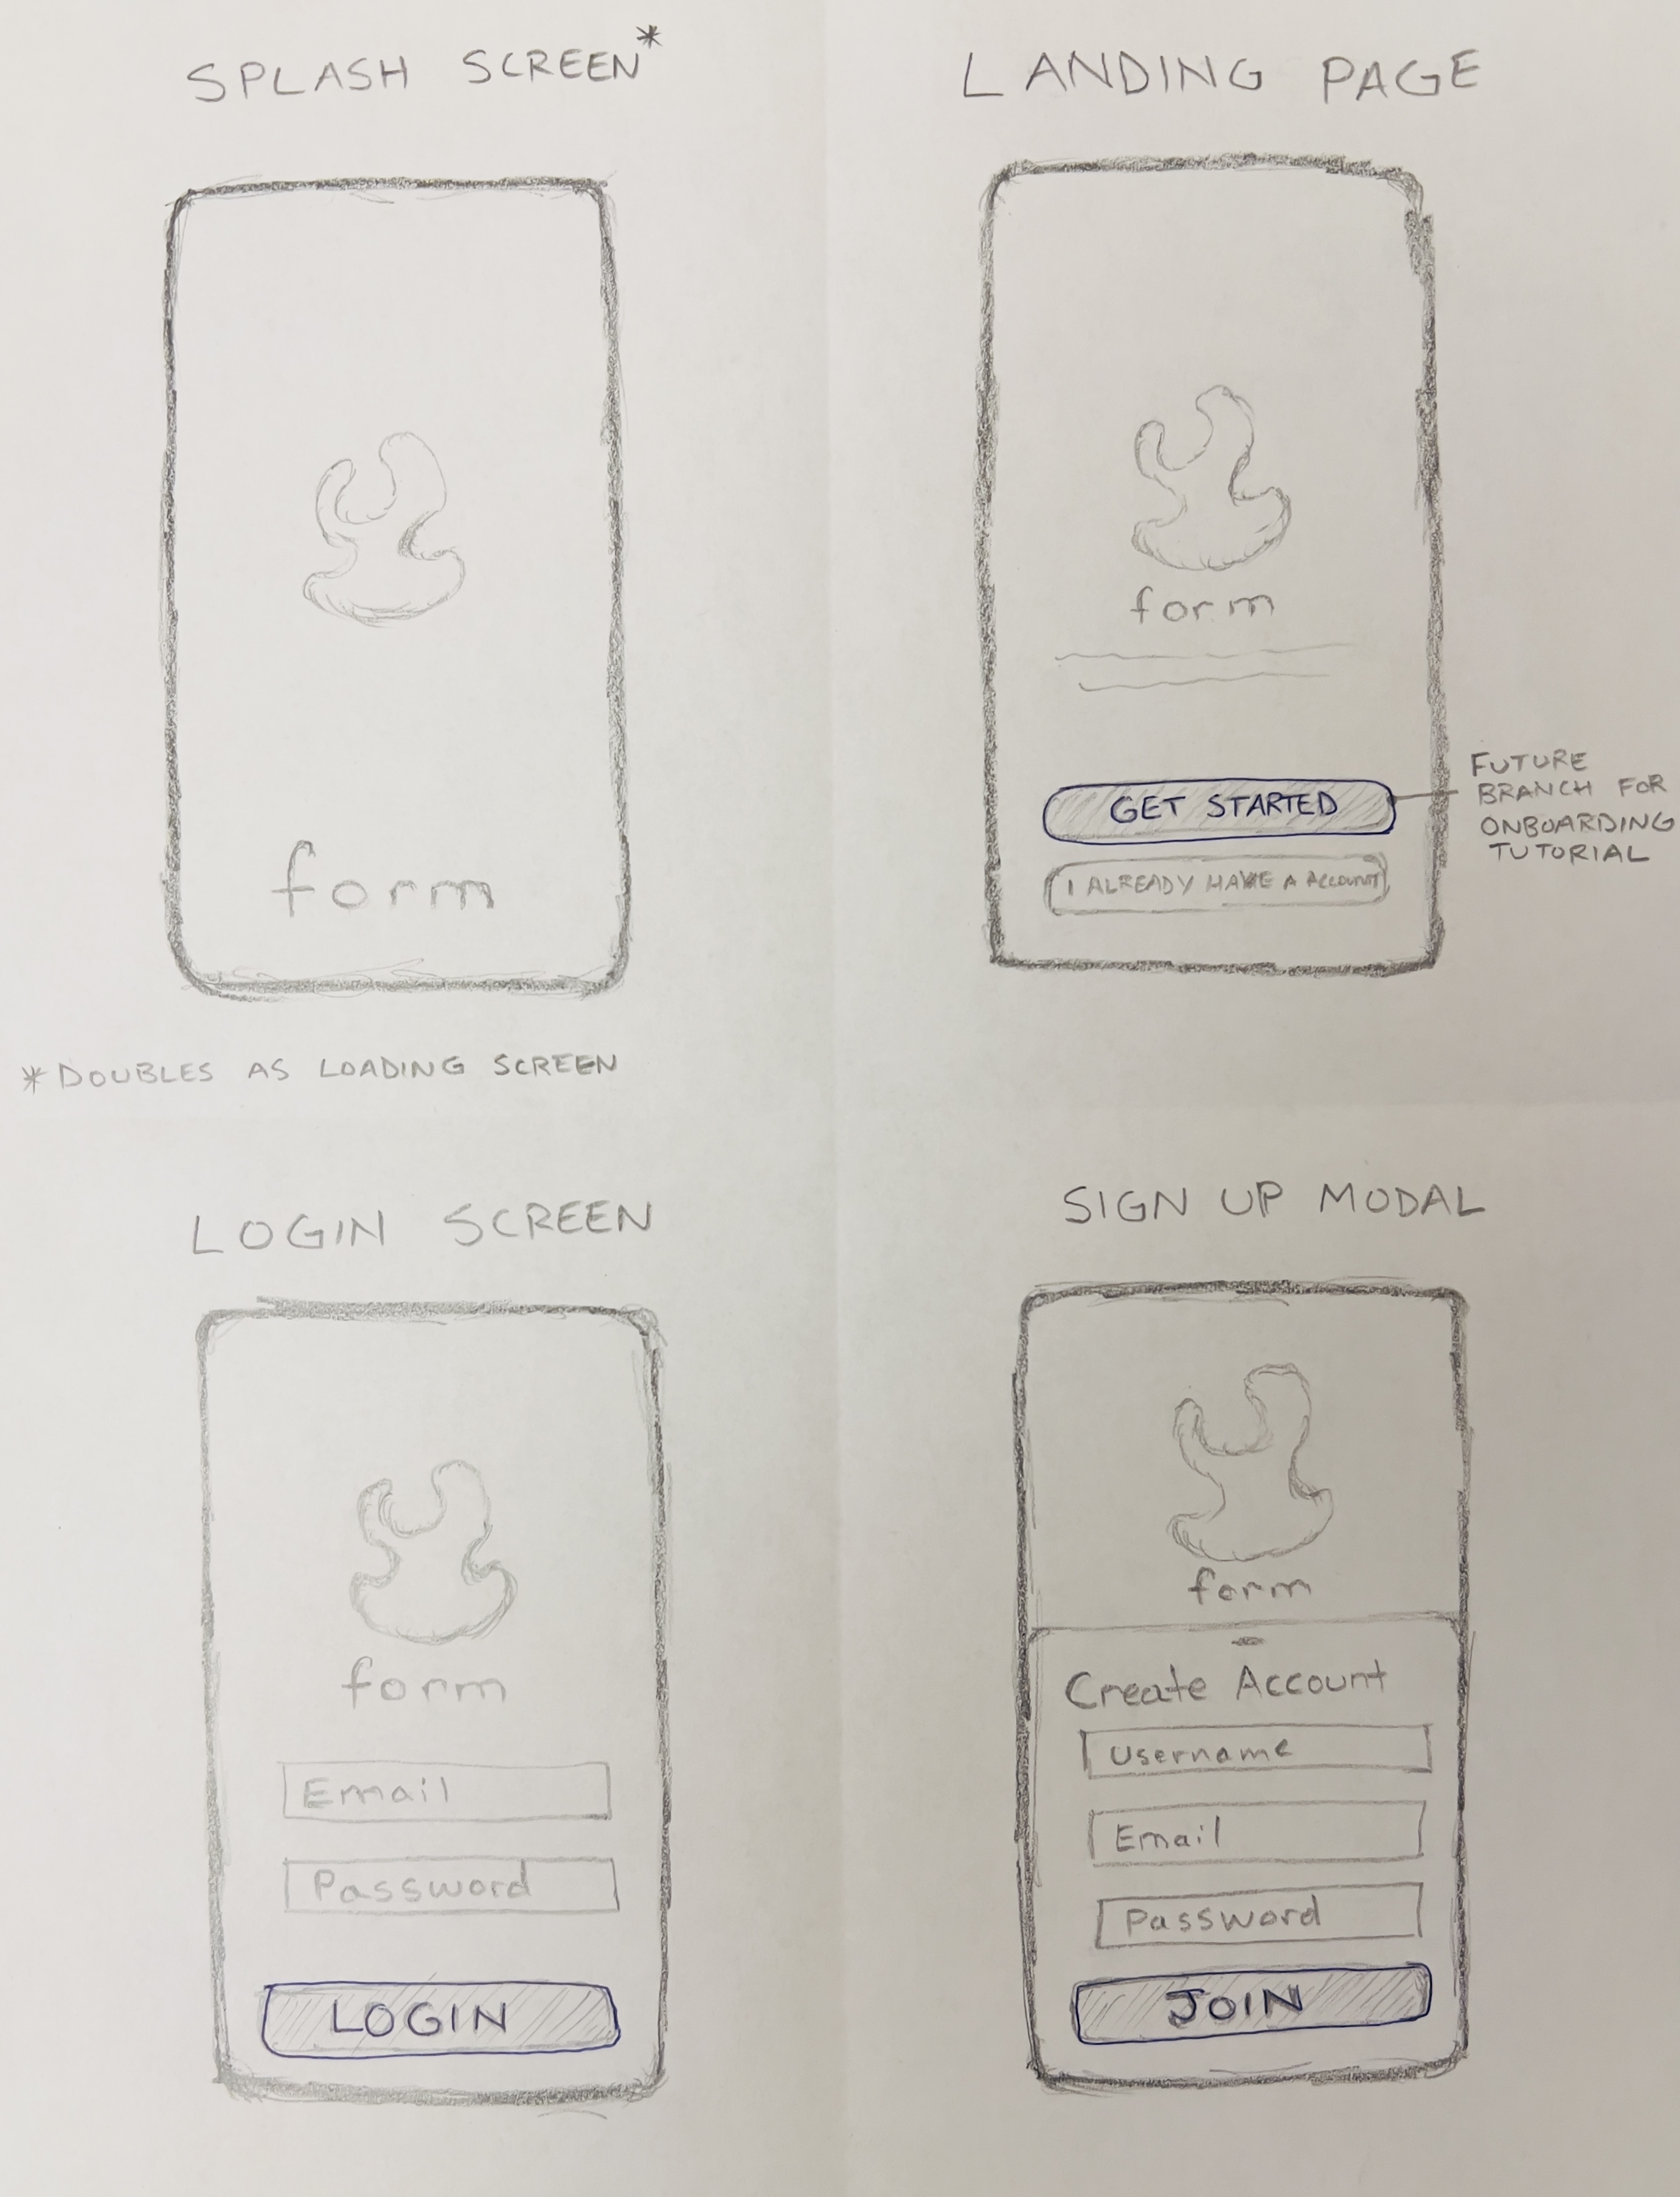 SPLASH SCREEN*
form
*DOUBLES AS LOADING SCREEN
LANDING PAGE
form
GET STARTED
I ALREADY HAVE A ACCOUNT
FUTURE
BRANCH FOR
ONBOARDING
TUTORIAL
LOGIN SCREEN
form
Email
Password
LOGIN
SIGN UP MODAL
form
Create Account
Username
Email
Password
JOIN